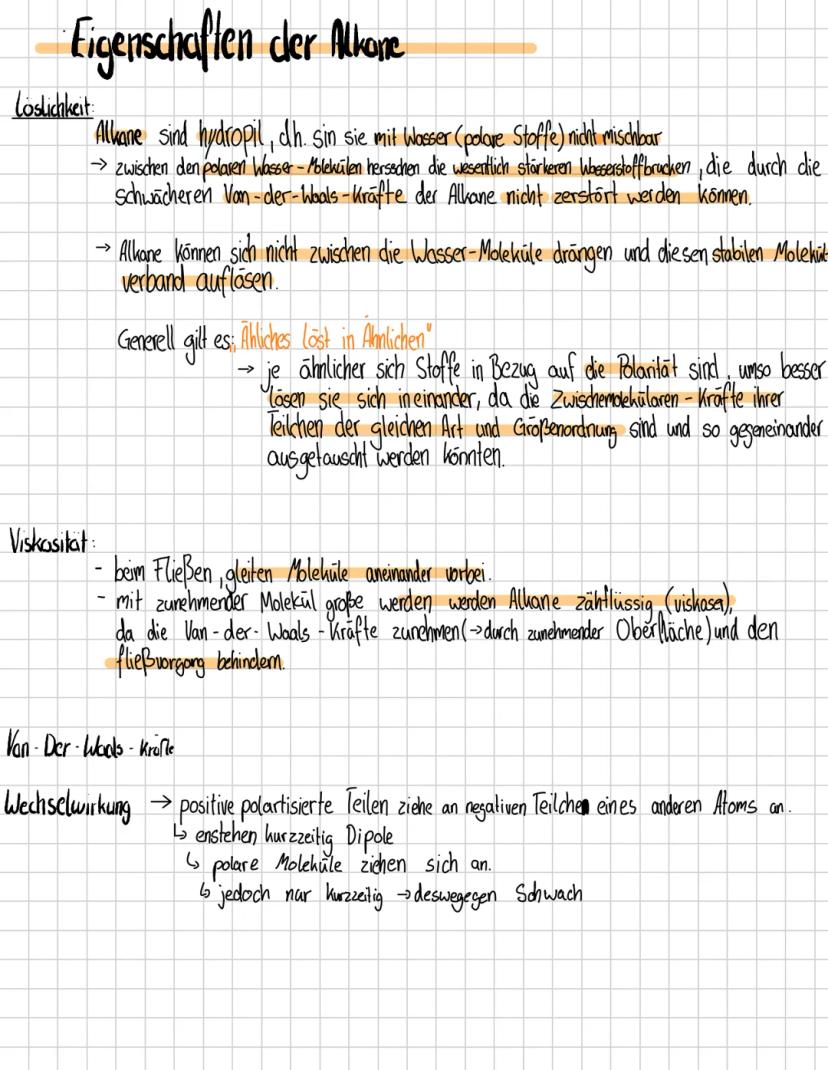 Eigenschaften der Alkane
Löslichkeit:
Alkane sind hydropil, d.h. sin sie mit Wasser (polare Stoffe) nicht mischbar
→ zwischen den polaren Wasser-Molekülen herschen die wesentlich stärkeren Wasserstoffbrücken, die durch die
schwächeren Van-der-Waals-Kräfte der Alkane nicht zerstört werden können.
→ Alkane können sich nicht zwischen die Wasser-Moleküle drängen und diesen stabilen Molekül-
verband auflösen.
Generell gilt es: „Ähliches löst in Ähnlichen"
→ je ähnlicher sich Stoffe in Bezug auf die Polarität sind, umso besser
lösen sie sich ineinander, da die Zwischemolekülaren-Kräfte ihrer
Teilchen der gleichen Art und Größenordnung sind und so gegeneinander
ausgetauscht werden könnten.
Viskosität:
- beim Fließen, gleiten Moleküle aneinander vorbei.
- mit zunehmender Molekül große werden werden Alkane zähflüssig (viskoser),
da die Van-der-Waals-Kräfte zunehmen (→ durch zunehmender Oberfläche) und den
fließvorgang behindern.
Van-Der-Waals-Kräfte
Wechselwirkung → positive polartisierte Teilen ziehe an negativen Teilchen eines anderen Atoms an.
↳ enstehen kurzzeitig Dipole
↳ polare Moleküle ziehen sich an.
↳ jedoch nur kurzzeitig → deswegegen Schwach